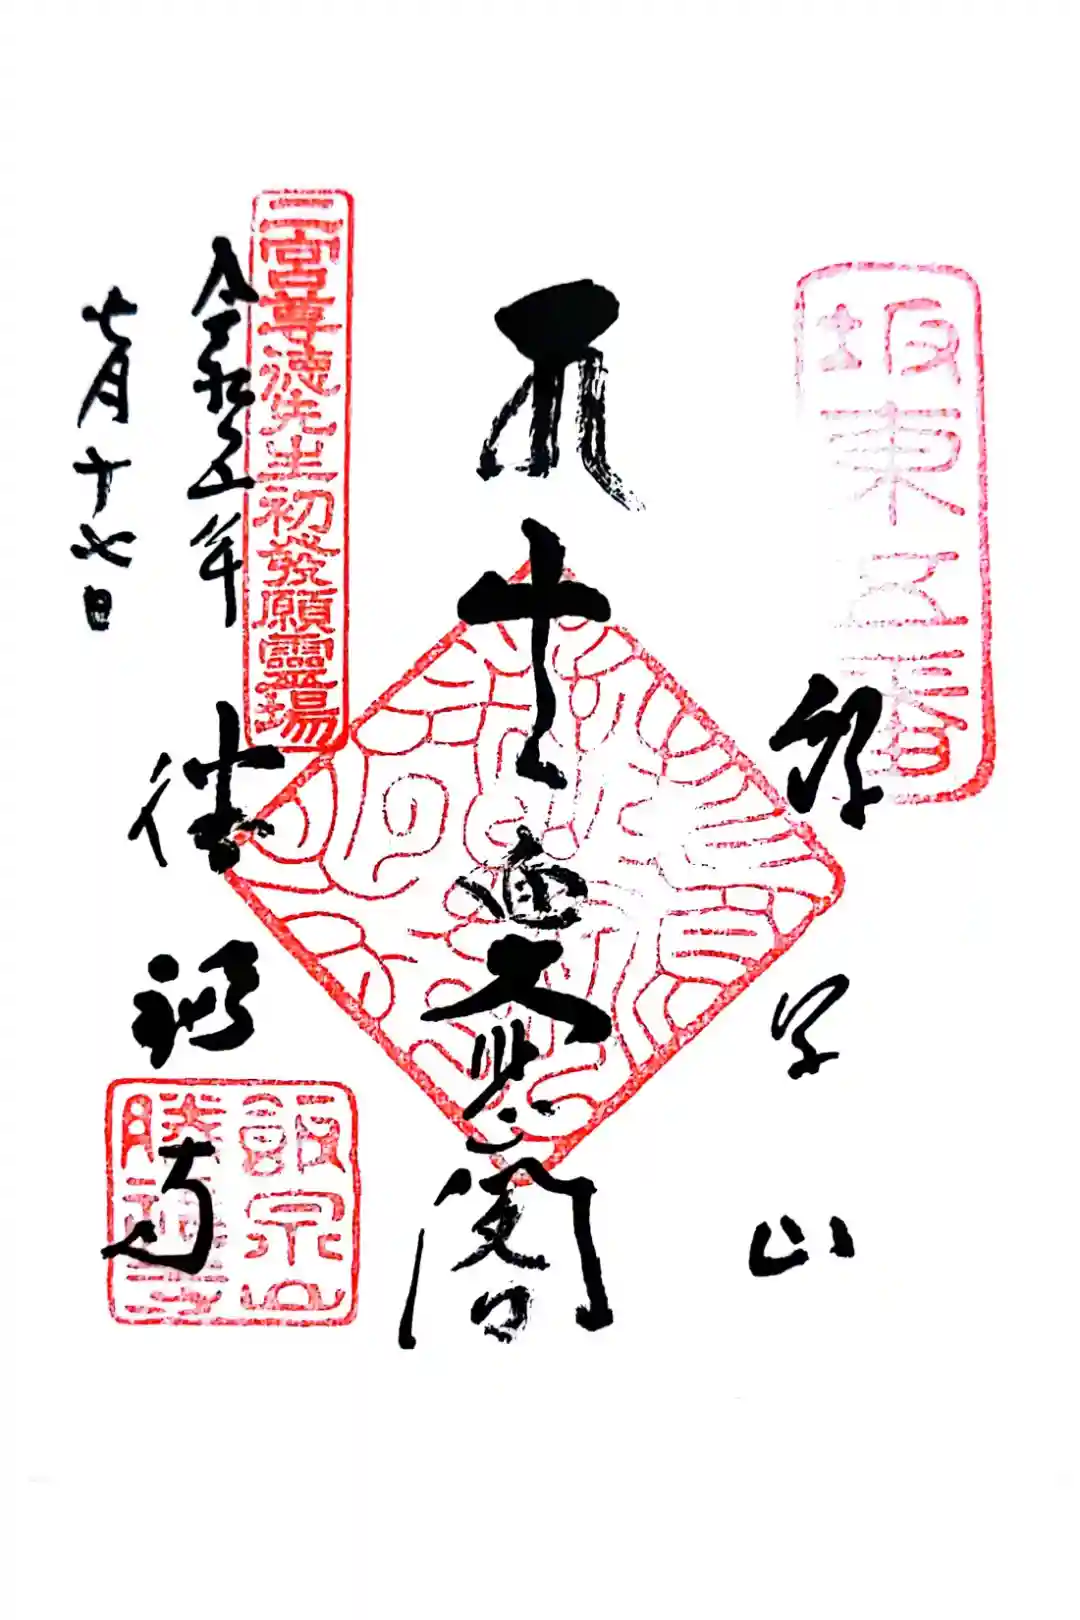 坂東五番
飯泉山
十一面大悲閣
二宮尊徳先生初發願靈場
令和五年
七月十七日
勝福寺
飯泉山
勝福寺